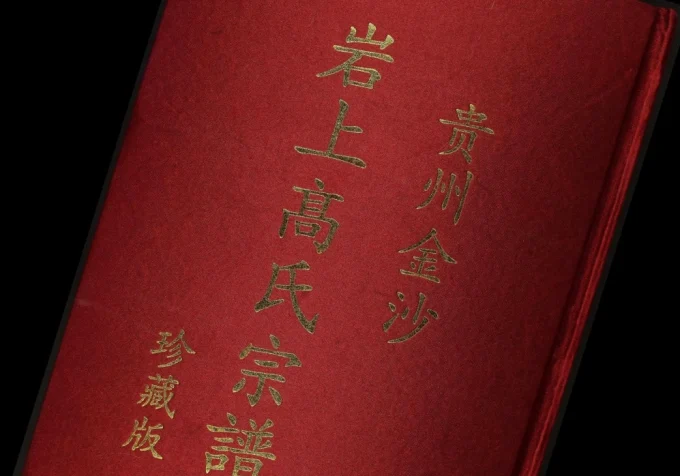 贵州金沙
岩上髙氏宗譜
珍藏版